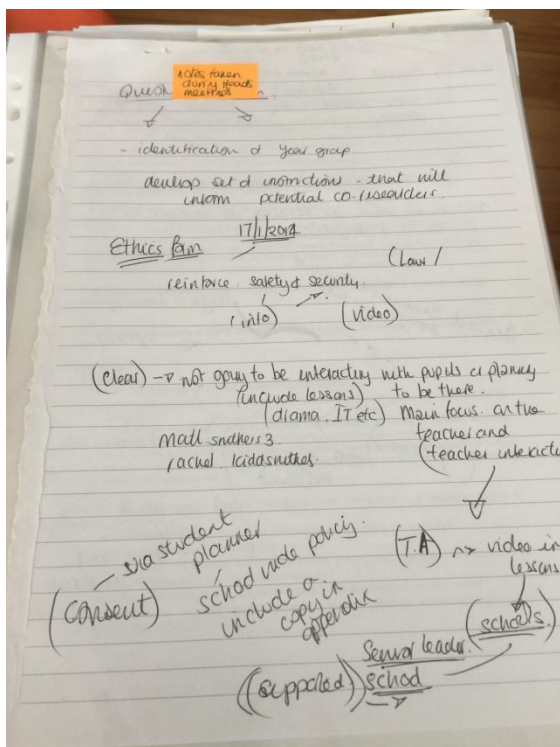 Quest
notes taken
during Heads
meetings
- identification of Year group
develop set of instructions - that will
inform potential co-researchers.
17/1/2014
Ethics form
(Law /
reinforce safety & security.
(info) (video)
(clear) → not going to be interacting with pupils or planning
(include lessons) to be there.
(drama, IT etc) Main focus on the
teacher and
(teacher interacti
rachel
via student
planner
(consent)
school wide policy.
include a
copy in
appendix
(T.A) → video in
lessons
(schools.)
Senior leader.
((supported)) school